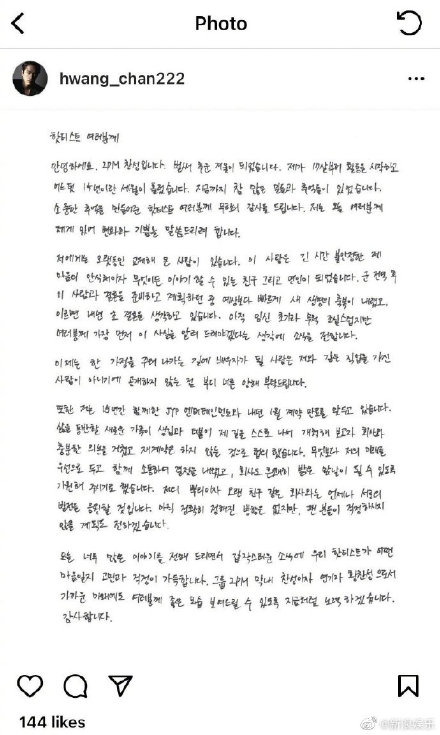 Photo
hwang_chan222
핫티스트 여러분께
안녕하세요. 2PM 찬성입니다. 벌써 추운 겨울이 되었습니다. 제가 17살부터 활동을 시작하고
어느덧 15년이란 세월이 흘렀습니다. 지금까지 참 많은 일들과 추억들이 있었습니다.
소중한 추억을 만들어준 핫티스트 여러분께 무한히 감사를 드립니다. 저는 오늘 여러분께
제게 있어 변화와 기쁨을 말씀드리려 합니다.
저에게는 오랫동안 교제해 온 사람이 있습니다. 이 사람은 긴 시간 불안정한 제
마음의 안식처이자 무엇이든 이야기 할 수 있는 친구 그리고 연인이 되었습니다. 군 전역 후
이 사람과 결혼을 준비하고 계획하던 중 예상보다 빠르게 새 생명의 축복이 내렸고,
이르면 내년 초 결혼을 생각하고 있습니다. 아직 임신 초기라 무척 조심스럽지만
여러분께 가장 먼저 이 사실을 알려 드려야겠다는 생각에 소식을 전합니다.
이제는 한 가정을 꾸려 나가는 길에 배우자가 될 사람은 저와 같은 직업을 가진
사람이 아니기에 공개하지 않는 점 부디 너른 양해 부탁드립니다.
또한 저는 15년간 함께한 JYP 엔터테인먼트와 내년 1월 계약 만료를 앞두고 있습니다.
삶을 동반할 새로운 가족이 생김과 더불어 제 길을 스스로 나서 개척해 보고자 회사와
충분한 의논을 거쳤고 재계약은 하지 않는 것으로 합의 했습니다. 무엇보다 저의 미래를
우선으로 두고 함께 소통하며 결정을 내렸고, 회사도 온전히 밝은 앞날이 될 수 있도록
기원해 주시기로 했습니다. 저의 뿌리이자 오랜 친구 같은 회사와는 언제나 서로의
발전을 응원할 것입니다. 아직 정확히 정해진 방향은 없지만, 팬 분들이 걱정하시지
않을 계획도 전하겠습니다.
오늘 너무 많은 이야기를 전해 드리면서 갑작스러운 소식에 우리 핫티스트가 어떤
마음일지 고민과 걱정이 가득합니다. 그룹 2PM 막내 찬성이자 연기자 황찬성으로서
가까운 미래에도 여러분께 좋은 모습 보여드릴 수 있도록 지금처럼 노력하겠습니다.
감사합니다.
144 likes
@新浪娱乐